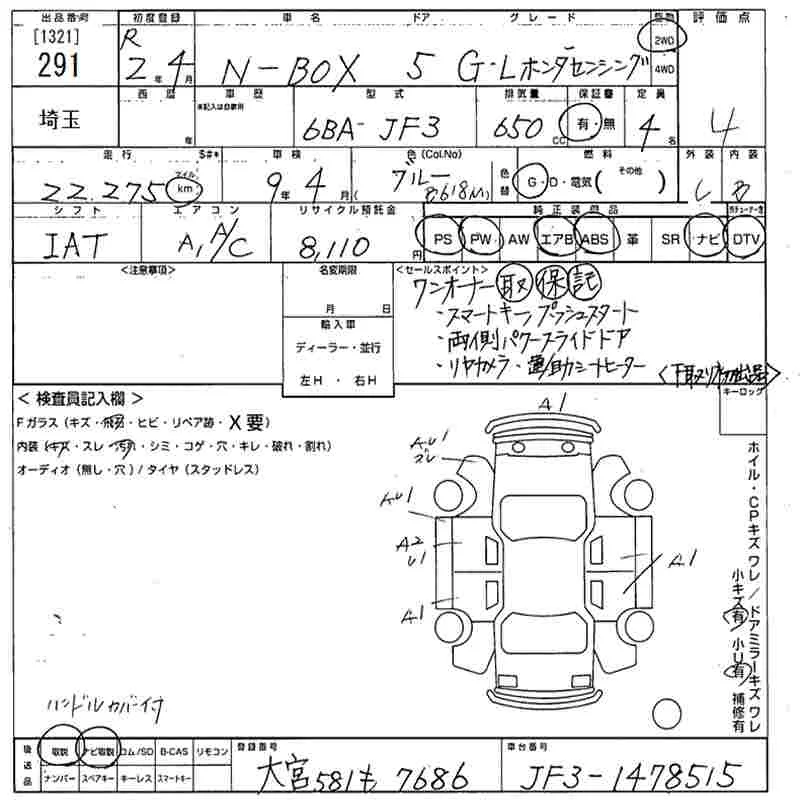 出品番号 初度登録 車名 ドア グレード 駆動 評価点
[1321] R 2WD
291 2年 4月 N-BOX 5 G・Lホンダセンシング 4WD
西暦 車歴 型式 排気量 保証書 定員 4
埼玉 年 ※記入は自家用 6BA-JF3 650cc 有・無 4名
走行 S#* 車検 色(Col.No) 燃料 外装 内装
22.275 マイル km 9年 4月 ブルー B618M 色替 G・D・電気( その他 ) B
シフト エアコン リサイクル預託金 純正装備品
IAT A,A/C 8,110円 PS PW AW エアB ABS 革 SR ナビ DTV
<注意事項> 名変期限 <セールスポイント>
月 日 ワンオーナー 取 保 記
輸入車 ・スマートキー/プッシュスタート
ディーラー・並行 ・両側パワースライドドア
左H ・ 右H ・リヤカメラ・運/助シートヒーター
キーロック
< 検査員記入欄 >
Fガラス(キズ・飛石・ヒビ・リペア跡・X要)
内装(キズ・スレ・汚れ・シミ・コゲ・穴・キレ・破れ・割れ)
オーディオ(無し・穴)/タイヤ(スタッドレス)
A1
AU1
スレ
AU1
A2
U1
A1
A1
ホイル・CPキズ ワレ/ドアミラーキズ ワレ
小キズ有 小U有 補修有
ハンドルカバー付
後送品 取説 ナビ取説 ロム/SD B-CAS リモコン 登録番号 車台番号
ナンバー スペアキー キーレス スマートキー 大宮581も7686 JF3-1478515